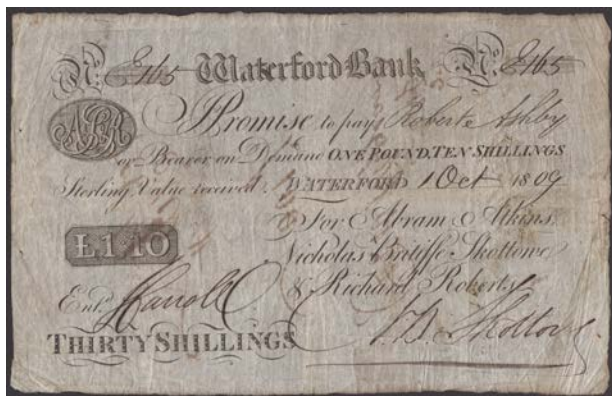 No. E165 Waterford Bank No. E165
I Promise to pay Robert Ashby
or Bearer on Demand ONE POUND, TEN SHILLINGS
Sterling Value received. WATERFORD 1 Oct 1809
For Abram Atkins,
£1·10
Nicholas Britiffe Skottowe
& Richard Roberts
Entd.
THIRTY SHILLINGS N B Skottowe